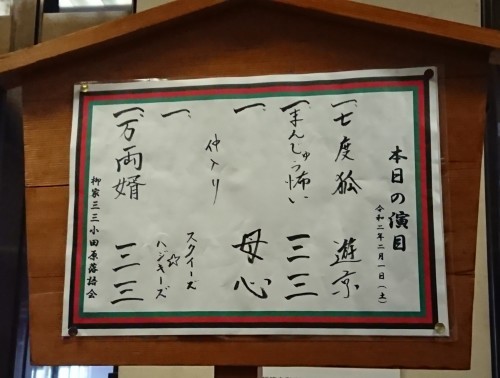 本日の演目
令和二年二月一日(土)
一、七度狐 遊京
一、まんじゅう怖い 三三
一、 母心
仲入り
一、
スクイーズ
ハンキーズ
一、万両婿 三三
柳家三三小田原落語会